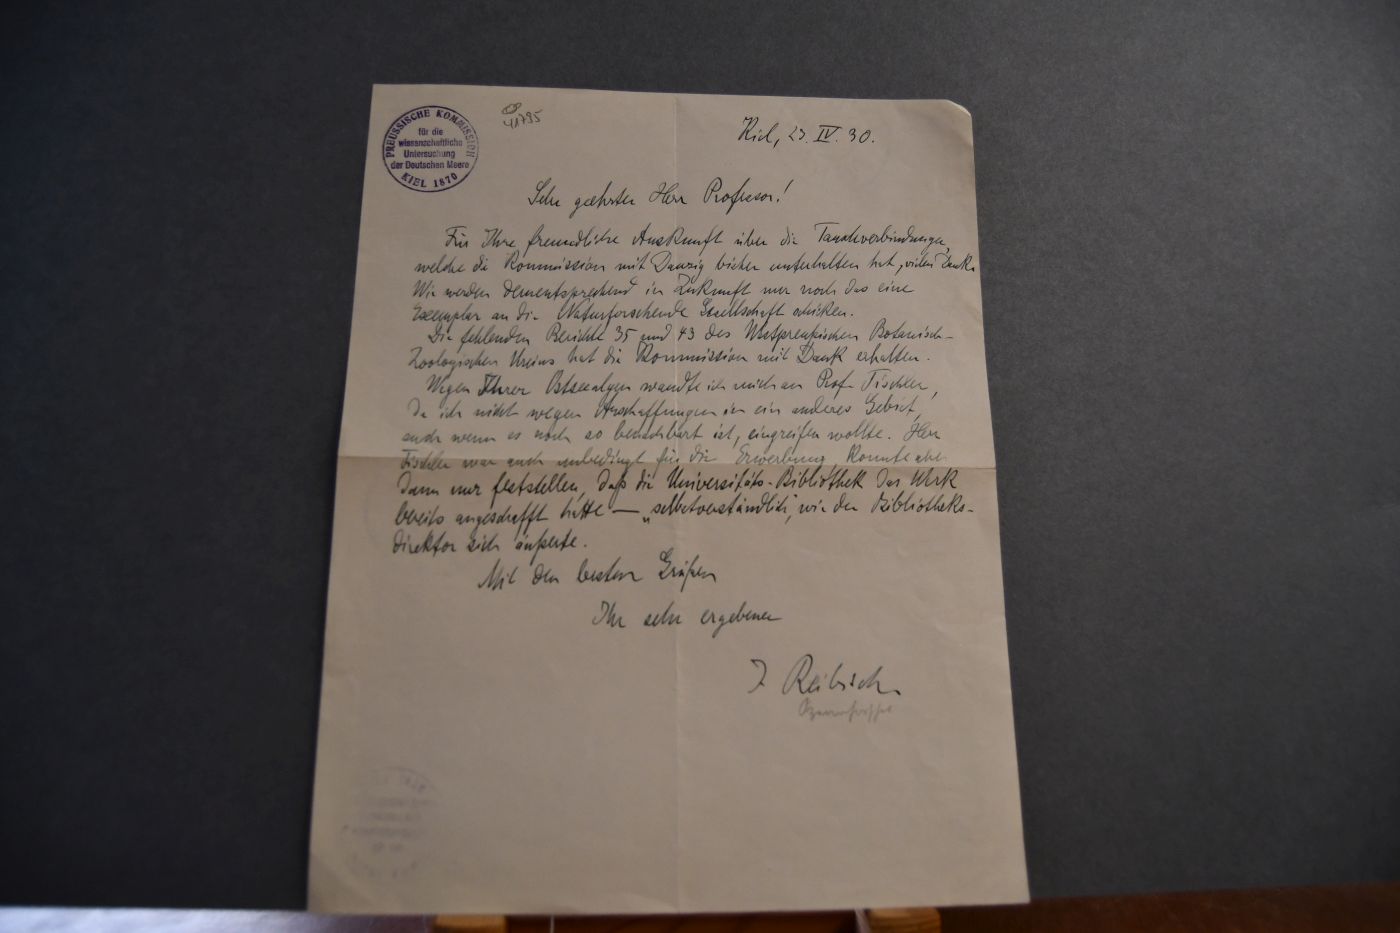 PREUSSISCHE KOMMISSION
für die
wissenschaftliche
Untersuchung
der Deutschen Meere
KIEL 1870
41795
Kiel, 23. IV. 30.
Sehr geehrter Herr Professor!
Für Ihre freundliche Auskunft über die Tauschverbindungen,
welche die Kommission mit Danzig bisher unterhalten hat, vielen Dank.
Wir werden dementsprechend in Zukunft nur noch das eine
Exemplar an die Naturforschende Gesellschaft schicken.
Die fehlenden Berichte 35 und 43 des Westpreußischen Botanisch-
Zoologischen Vereins hat die Kommission mit Dank erhalten.
Wegen Ihrer Ostseealgen wandte ich mich an Prof. Tischler,
da ich nicht wegen Anschaffungen in ein anderes Gebiet,
auch wenn es noch so benachbart ist, eingreifen wollte. Herr
Tischler war auch unbedingt für die Erwerbung, konnte aber
dann nur feststellen, daß die Universitäts-Bibliothek das Werk
bereits angeschafft hatte — „selbstverständlich", wie der Bibliotheks-
direktor sich äußerte.
Mit den besten Grüßen
Ihr sehr ergebener
J Reibisch.